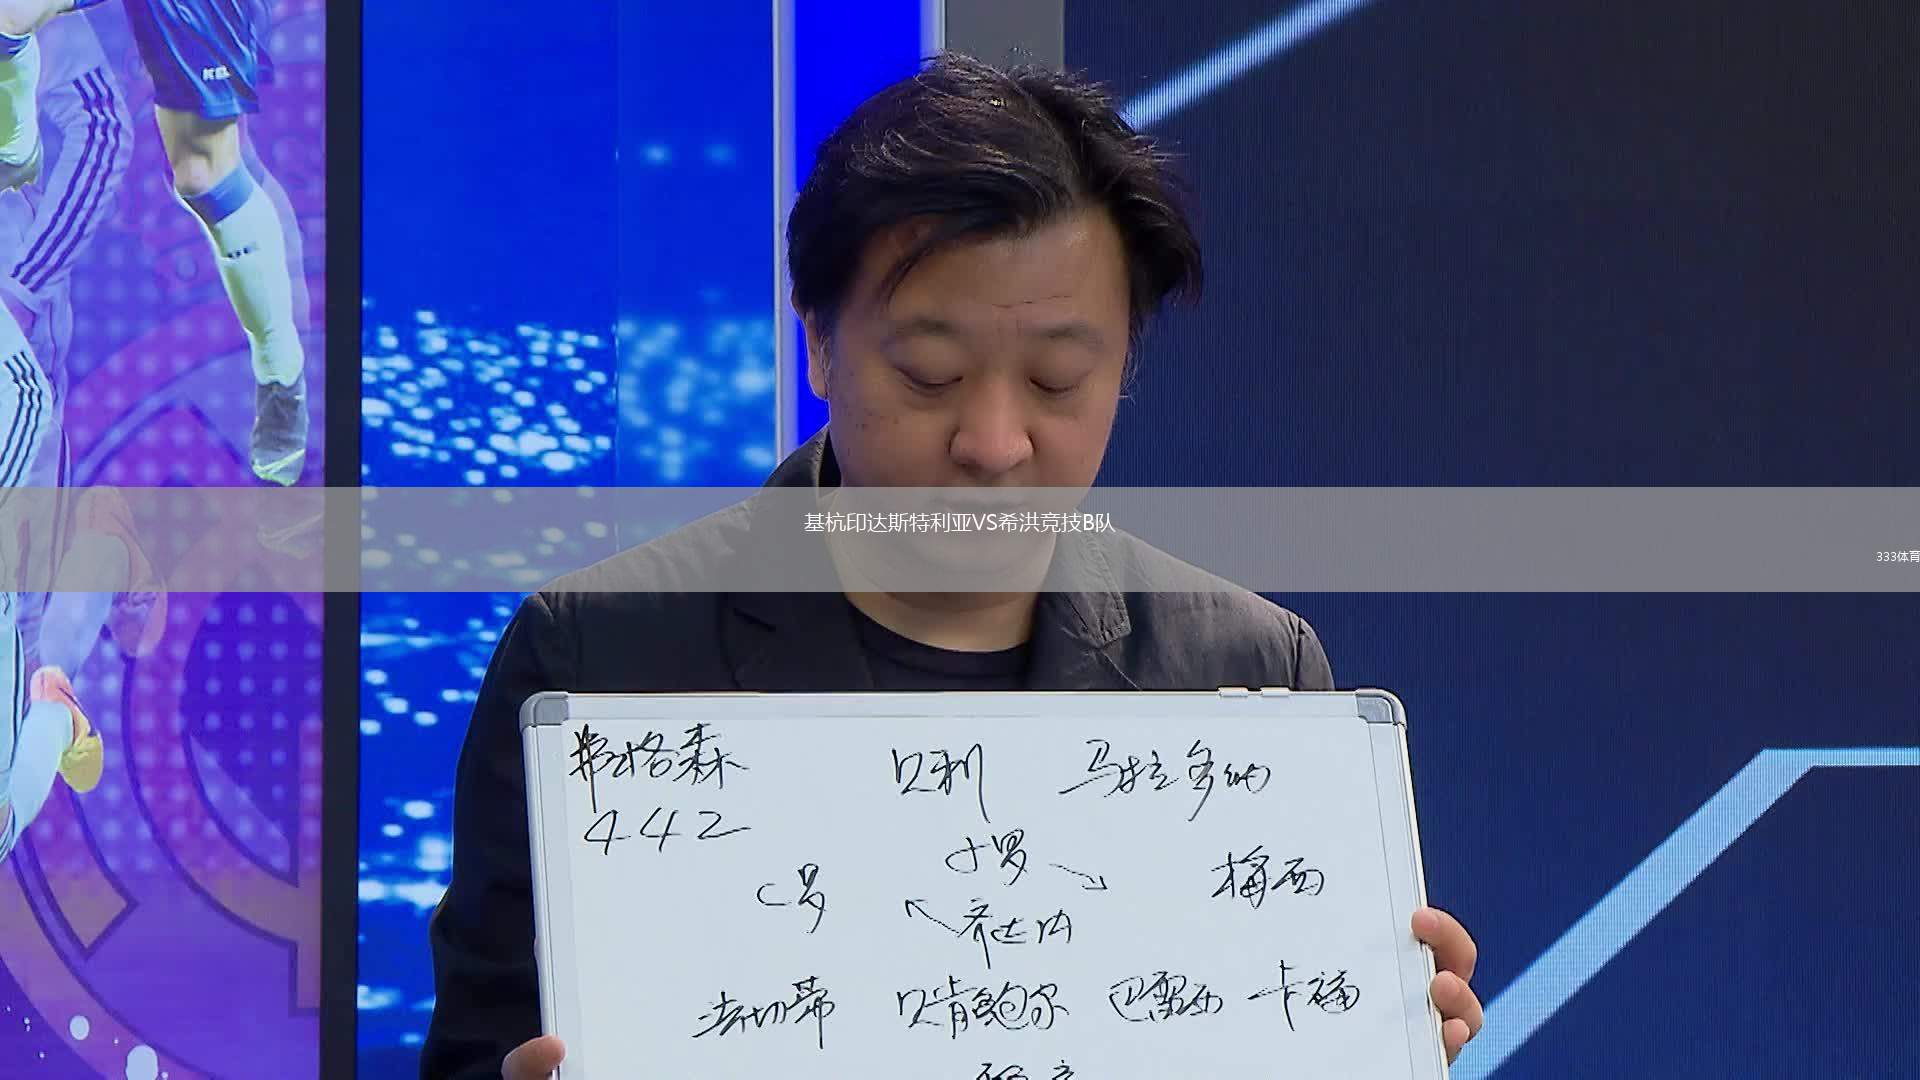 基杭印达斯特利亚VS希洪竞技B队
333体育
弗格森 贝利 马拉多纳
442
小罗
C罗 梅西
齐达内
法切蒂 贝肯鲍尔 巴雷西 卡福